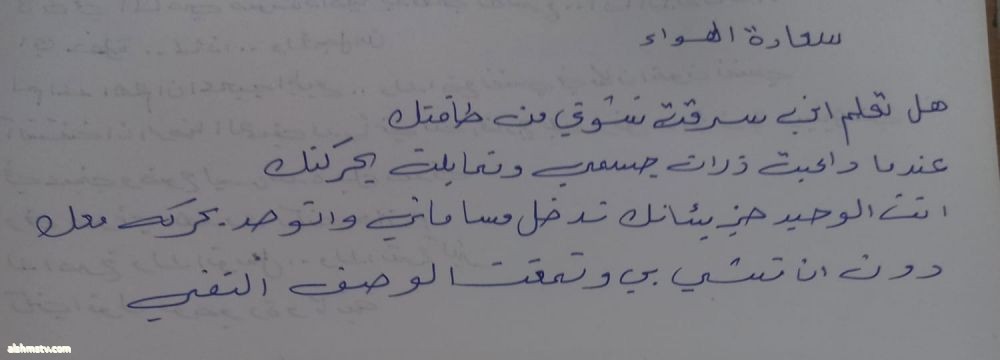 سعادة الهواء
هل تعلم اني سرقت نشوتي من طاقتك
عندما داعبت ذرات جسمي وتمايلت بحركتك
انت الوحيد جزيئاتك تدخل مساماتي واتوحد بحركه معك
دون ان تشي بي وتمقت الوصف
alshmstv.com